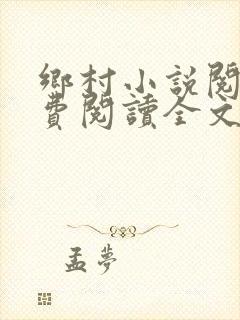 鄉村小說閱
費閱讀全文
孟夢